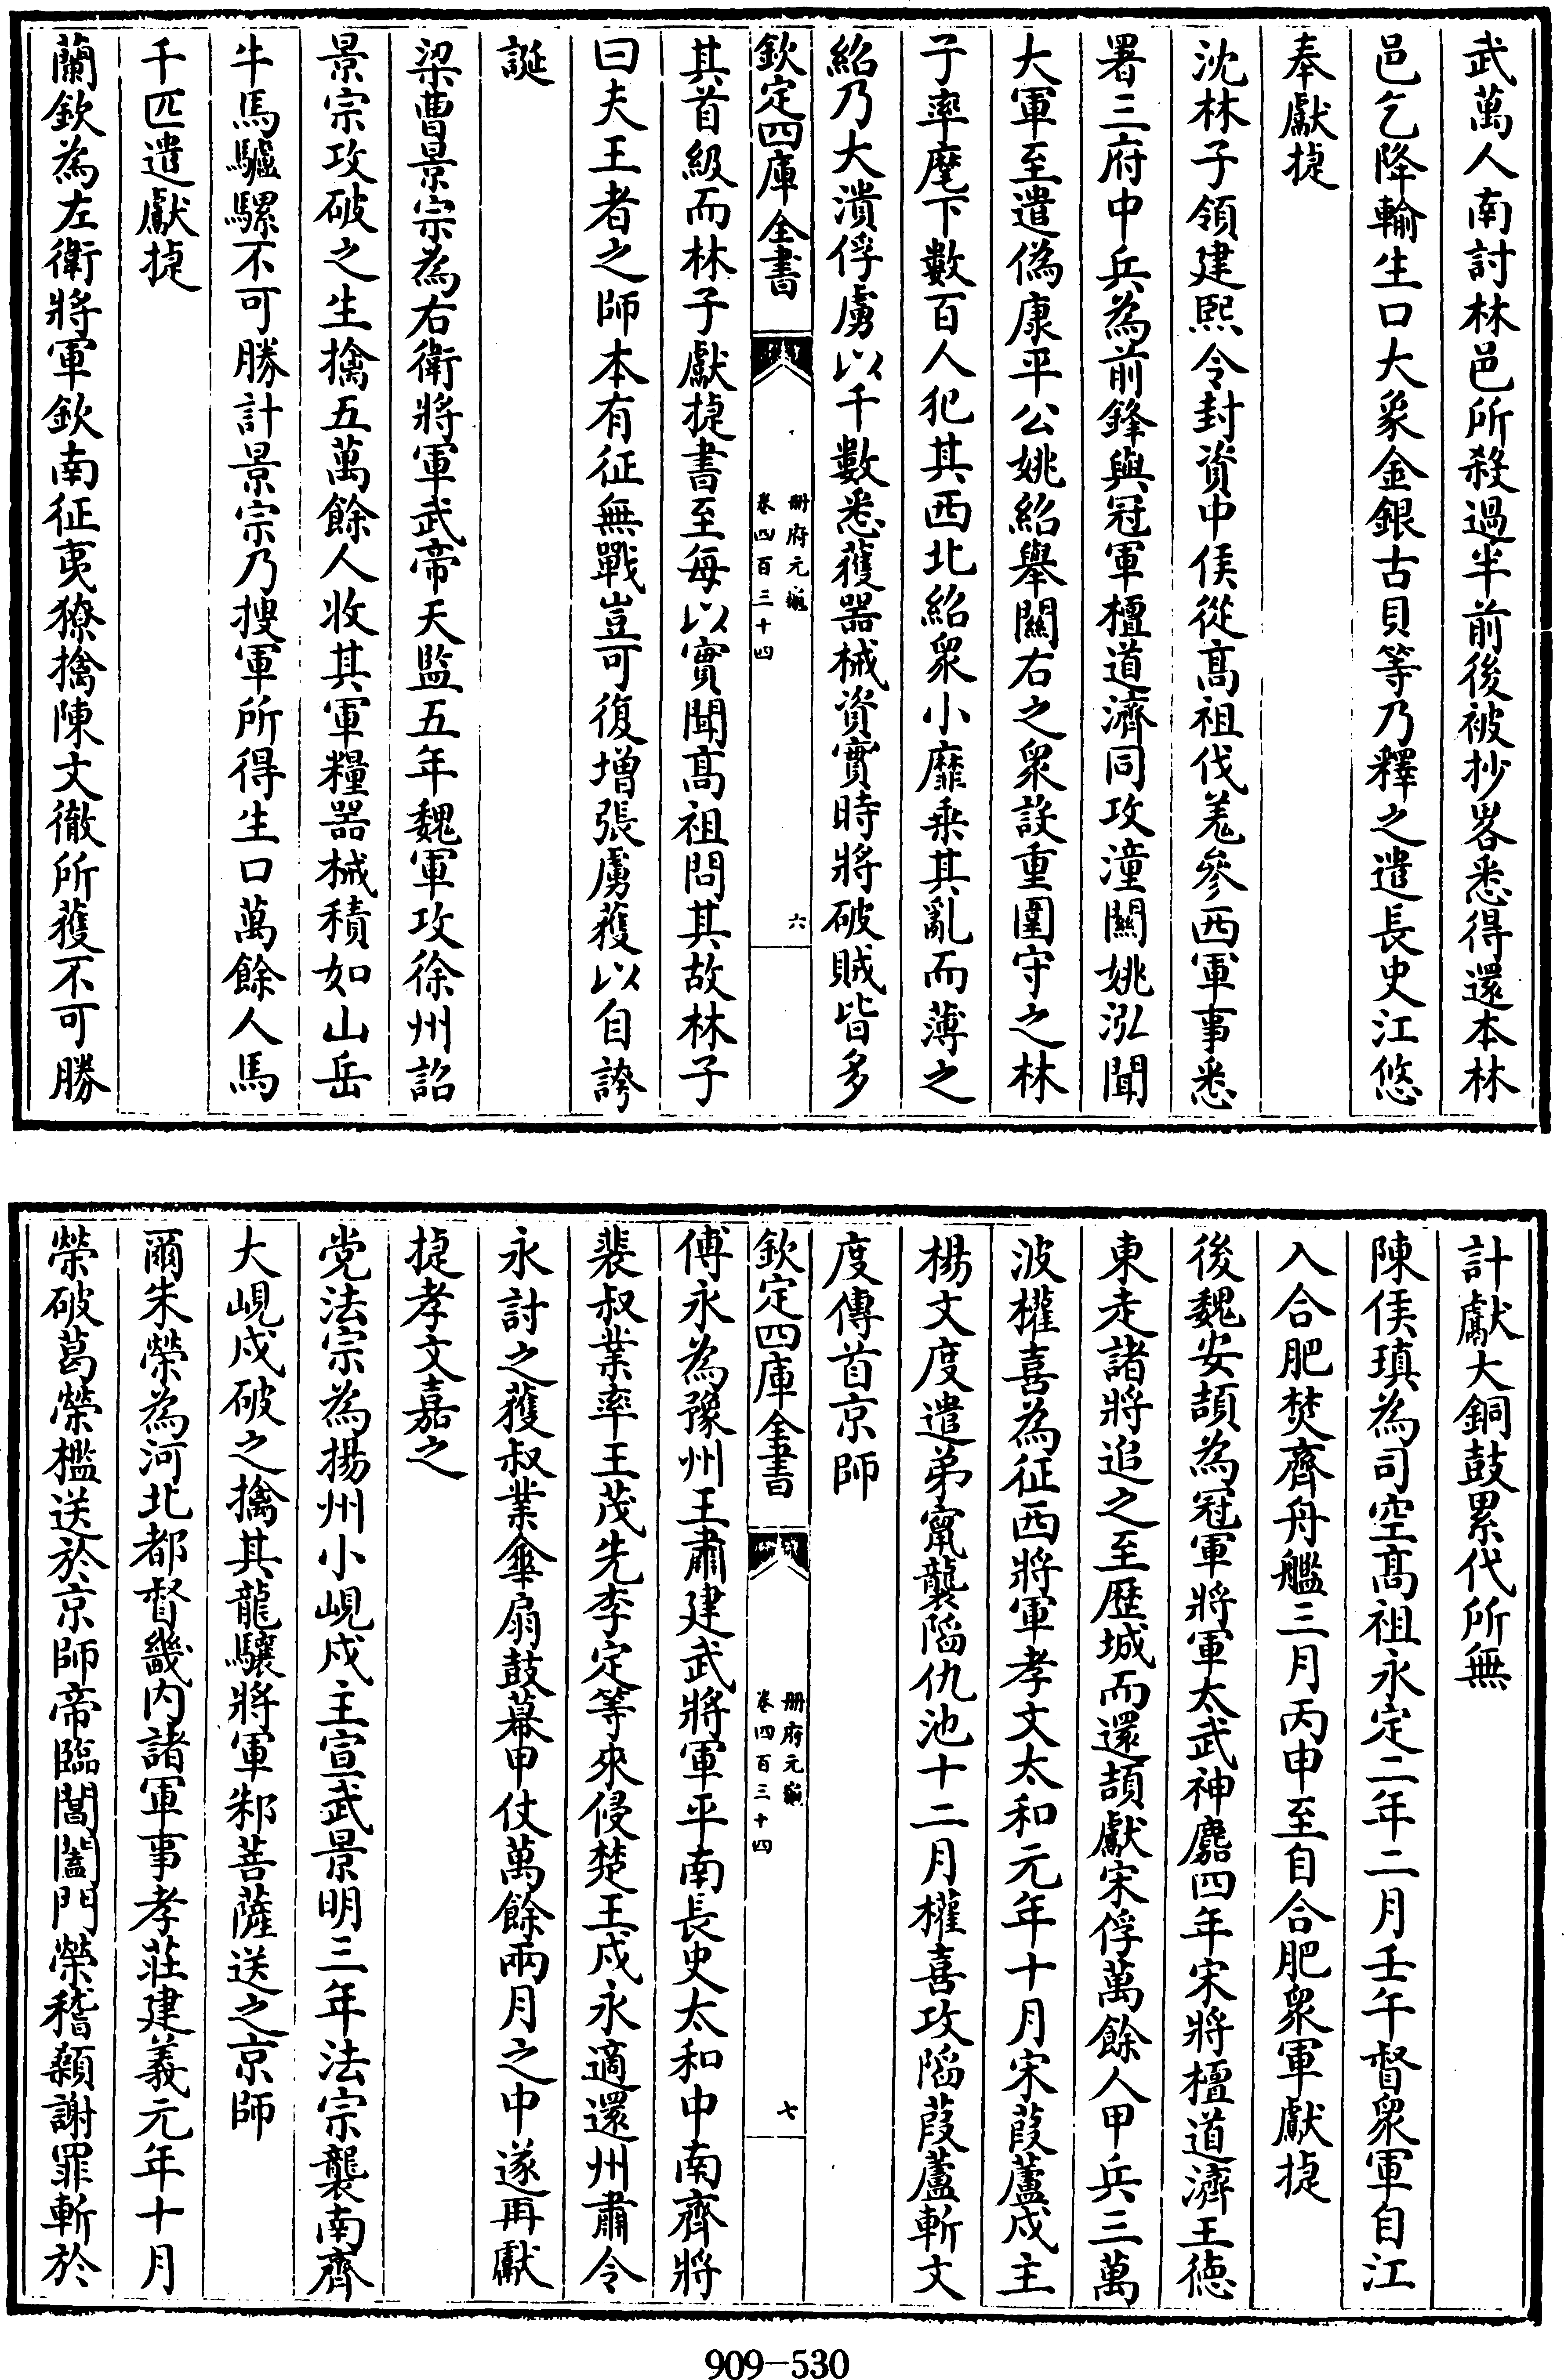 武萬人南討林邑所殺過半前後被抄畧悉得還本林
邑乞降輸生口大象金銀古貝等乃釋之遣長史江悠
奉獻捷
沈林子領建熙令封資中侯從高祖伐羗參西軍事悉
署三府中兵為前鋒與冠軍檀道濟同攻潼關姚泓聞
大軍至遣偽康平公姚紹舉關右之衆設重圍守之林
子率麾下數百人犯其西北紹衆小靡乗其亂而薄之
紹乃大潰俘虜以千數悉獲器械資實時將破賊皆多
欽定四庫全書
册府元龜
卷四百三十四
六
其首級而林子獻捷書至每以實聞高祖問其故林子
曰夫王者之師本有征無戰豈可復增張虜獲以自誇
誕
梁曹景宗為右衛將軍武帝天監五年魏軍攻徐州詔
景宗攻破之生擒五萬餘人收其軍糧器械積如山岳
牛馬驢騾不可勝計景宗乃搜軍所得生口萬餘人馬
千匹遣獻捷
蘭欽為左衛將軍欽南征夷獠擒陳文徹所獲不可勝
計獻大銅鼓累代所無
陳侯瑱為司空高祖永定二年二月壬午督衆軍自江
入合肥焚齊舟艦三月丙申至自合肥衆軍獻捷
後魏安頡為冠軍將軍太武神麚四年宋將檀道濟王徳
東走諸將追之至歴城而還頡獻宋俘萬餘人甲兵三萬
波權喜為征西將軍孝文太和元年十月宋葭蘆戍主
楊文度遣弟甯襲陷仇池十二月權喜攻陷葭蘆斬文
度傳首京師
欽定四庫全書
册府元龜
卷四百三十四
七
傅永為豫州王肅建武將軍平南長史太和中南齊將
裴叔業率王茂先李定等來侵楚王戍永適還州肅令
永討之獲叔業傘扇鼓幕甲仗萬餘兩月之中遂再獻
捷孝文嘉之
党法宗為揚州小峴戍主宣武景明三年法宗襲南齊
大峴戍破之擒其龍驤將軍邾菩薩送之京師
爾朱榮為河北都督畿内諸軍事孝莊建義元年十月
榮破葛榮檻送於京師帝臨閶闔門榮稽顙謝罪斬於
909-530